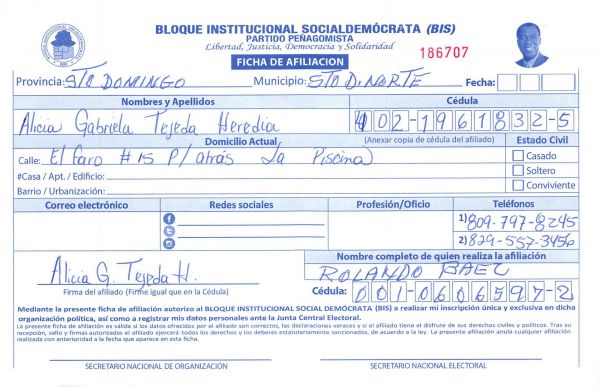 BLOQUE INSTITUCIONAL SOCIALDEMÓCRATA (BIS)
PARTIDO PEÑAGOMISTA
Libertad, Justicia, Democracia y Solidaridad
FICHA DE AFILIACION
186707
Provincia: STO DOMINGO Municipio: STO D. NORTE Fecha:
Nombres y Apellidos Cédula
Alicia Gabriela Tejeda Heredia 402-1961832-5
Domicilio Actual (Anexar copia de cédula del afiliado) Estado Civil
Calle: El faro #15 P/ atrás La Piscina Casado
#Casa / Apt. / Edificio: Soltero
Barrio / Urbanización: Conviviente
Correo electrónico Redes sociales Profesión/Oficio Teléfonos
1) 809-797-8245
2) 829-557-3456
Nombre completo de quien realiza la afiliación
Alicia G. Tejeda H. ROLANDO BAEZ
Firma del afiliado (Firme igual que en la Cédula) Cédula: 001-0606597-2
Mediante la presente ficha de afiliación autorizo al BLOQUE INSTITUCIONAL SOCIAL DEMÓCRATA (BIS) a realizar mi inscripción única y exclusiva en dicha
organización política, así como a registrar mis datos personales ante la Junta Central Electoral.
La presente ficha de afiliación es válida si los datos ofrecidos por el afiliado son correctos, las declaraciones veraces y si el afiliado tiene el disfrute de sus derechos civiles y políticos. Tras su
recepción, sello y firmas autorizadas el afiliado ejercerá todos los derechos y los deberes estatutariamente sancionados, de acuerdo a la ley. La presente afiliación anula cualquier afiliación
realizada con anterioridad a la fecha que aparece en esta ficha.
SECRETARIO NACIONAL DE ORGANIZACIÓN SECRETARIO NACIONAL ELECTORAL